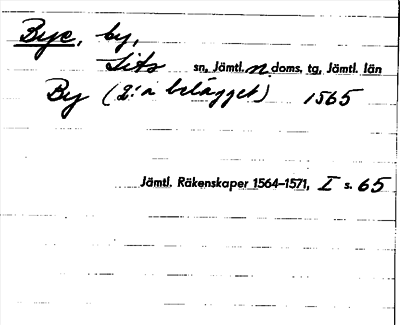 Bye, by,
Lits sn, Jämtl. n doms. tg, Jämtl. län
By (2:a belägget) 1565
Jämtl. Räkenskaper 1564–1571, I s. 65